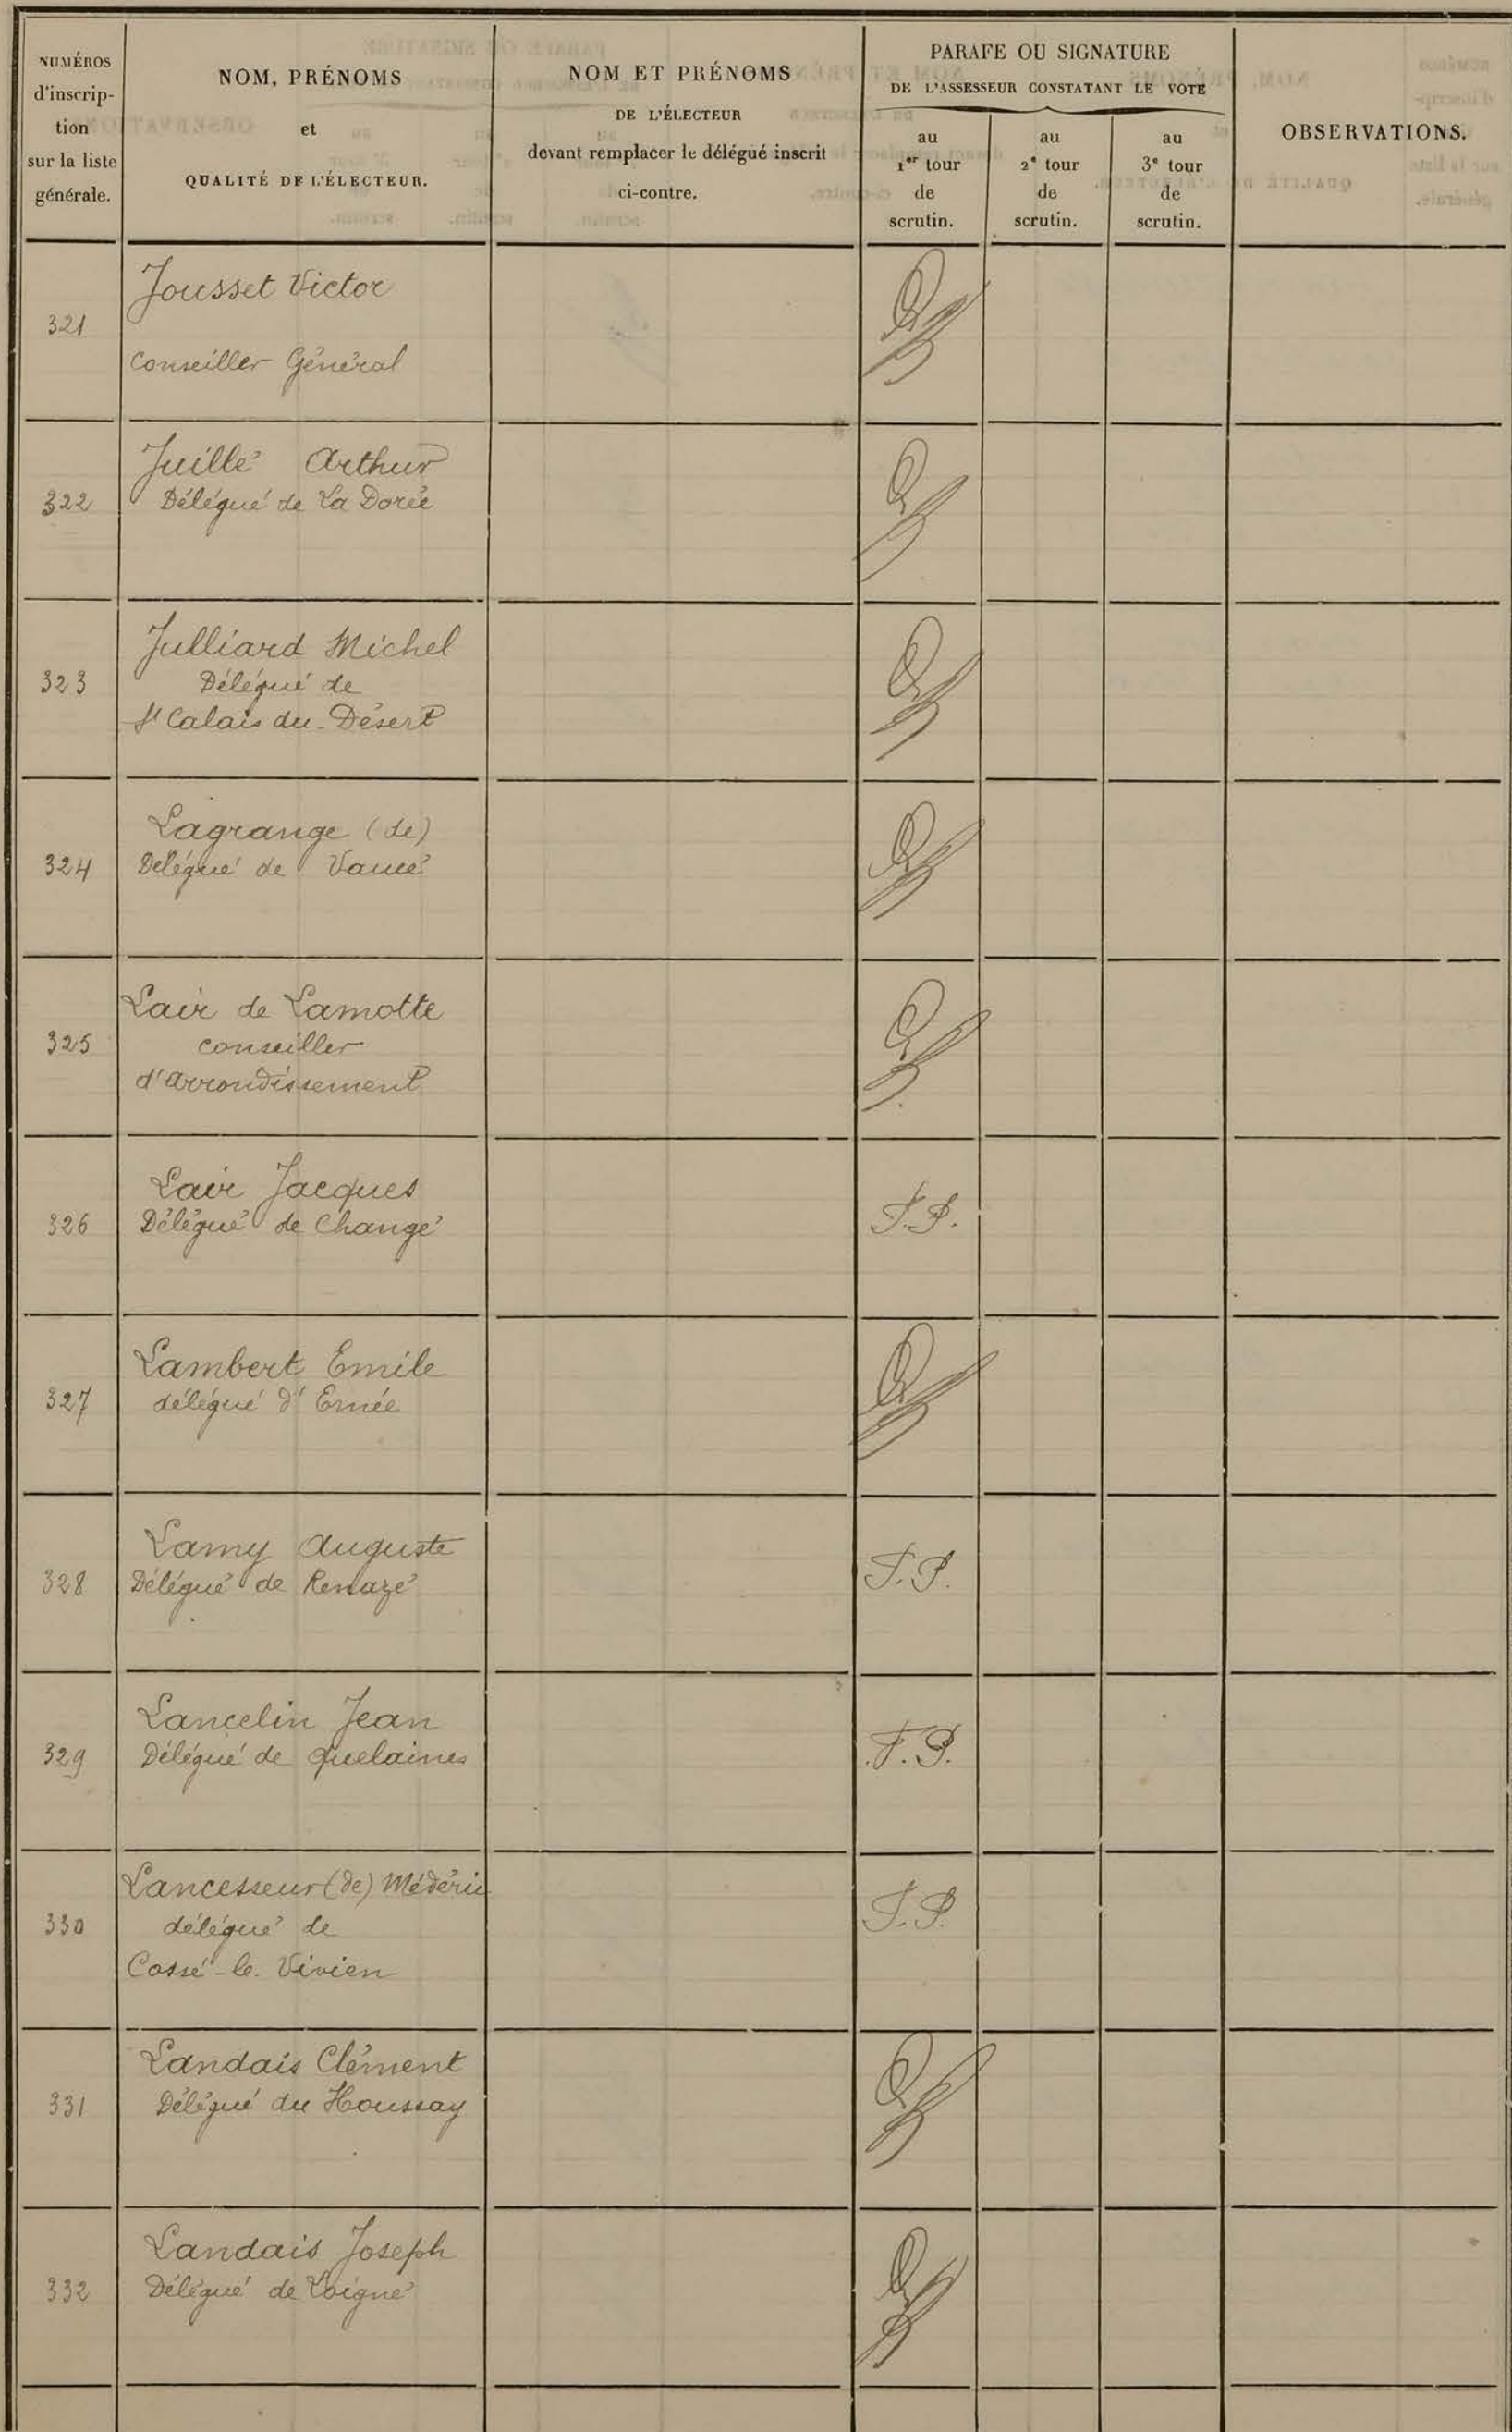 NUMÉROS
d'inscrip-
tion
sur la liste
générale.
NOM, PRÉNOMS
et
QUALITÉ DE L'ÉLECTEUR.
NOM ET PRÉNOMS
DE L'ÉLECTEUR
devant remplacer le délégué inscrit
ci-contre.
PARAFE OU SIGNATURE
DE L'ASSESSEUR CONSTATANT LE VOTE
au
1er tour
de
scrutin.
au
2e tour
de
scrutin.
au
3e tour
de
scrutin.
OBSERVATIONS.
321
Jousset Victor
Conseiller Général
322
Juillé Arthur
Délégué de La Dorée
323
Julliard Michel
Délégué de
St Calais du Désert
324
Lagrange (de)
Délégué de
325
Lair de Lamotte
conseiller
d'arrondissement
326
Lair Jacques
Délégué de Changé
327
Lambert Emile
délégué d'Ernée
328
Lamy Auguste
Délégué de Renazé
329
Lancelin Jean
Délégué de Quelaines
330
Lancesseur (de) Médéric
délégué de
Cossé-le-Vivien
331
Landais Clément
Délégué du Houssay
332
Landais Joseph
Délégué de Loigné